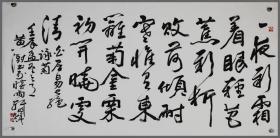 一夜新霜
着瓦轻芭
蕉新折
败荷傾耐
寒惟有東
籬菊金粟
初開曉更
清
白居易
詠菊